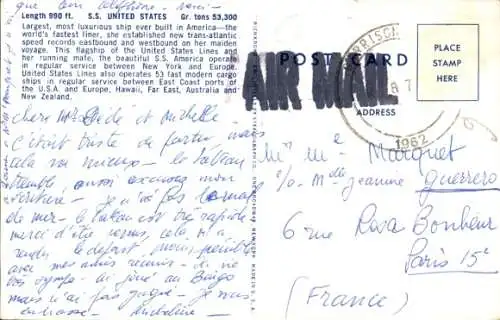 que bon téléphone - merci -
Length 990 ft. S.S. UNITED STATES Gr. tons 53,300
Largest, most luxurious ship ever built in America—the
world's fastest liner, she established new trans-atlantic
speed records eastbound and westbound on her maiden
voyage. This flagship of the United States Lines and
her running mate, the beautiful S.S. America operate
in regular service between New York and Europe.
United States Lines also operates 53 fast modern cargo
ships in regular service between East Coast ports of
the U.S.A. and Europe, Hawaii, Far East, Australia and
New Zealand.
chers et Michelle -
c'était triste de partir mais
cela va mieux - le bateau
tremble, aussi excusez mon
écriture - je n'ai pas le mal
de mer - le bateau est très
merci d'être venus, cela m'a
rendu le départ moins pénible
avec mes amis réunis - la vie
est sympa - ai joué au Bingo
mais n'ai pas gagné - je vous
embrasse -
POST CARD
AIR MAIL
ADDRESS
PLACE
STAMP
HERE
1962
Mr Me Marquet
c/o Melle Jeanine Guerrero
6 rue Rosa Bonheur
Paris 15e
(France)
MADE IN U.S.A.